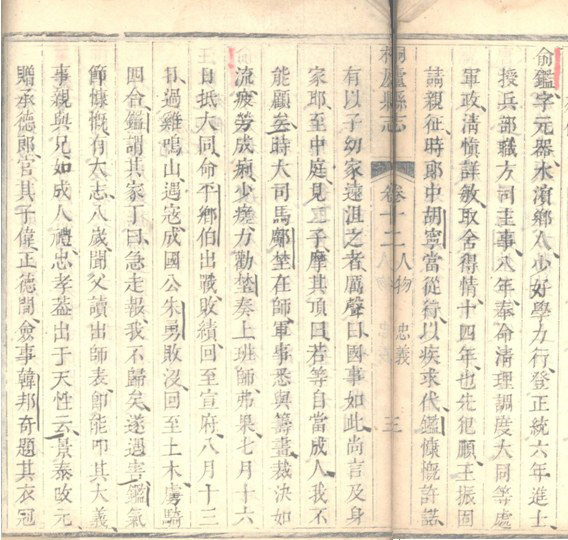 俞鑑字元器水濱鄉人少好學力行登正統六年進士
授兵部職方司主事八年奉命清理調度大同等處
軍政清慎詳敏取舍得情十四年也先犯順王振固
請親征時郎中胡寧當從待以疾求代鑑慷慨許諾
桐廬縣志 卷十二 人物 忠義 三
有以子幼家遠沮之者厲聲曰國事如此尚言及身
家耶至中庭見二子摩其頂曰若等自當成人我不
能顧矣時大司馬鄺埜在師軍事悉與籌畫裁決如
流疲勞成痢少瘥力勸埜奏上班師弗果七月十六
日抵大同命平鄉伯出戰敗績回至宣府八月十三
日過雞鳴山遇寇成國公朱勇敗沒回至土木虜騎
四合鑑謂其家丁曰急走報我不歸矣遂遇害鑑氣
節慷慨有大志八歲聞父讀出師表節能叩其大義
事親與兄如成人禮忠孝葢出于天性云景泰改元
贈承德郎官其子偉正德間僉事韓邦奇題其衣冠